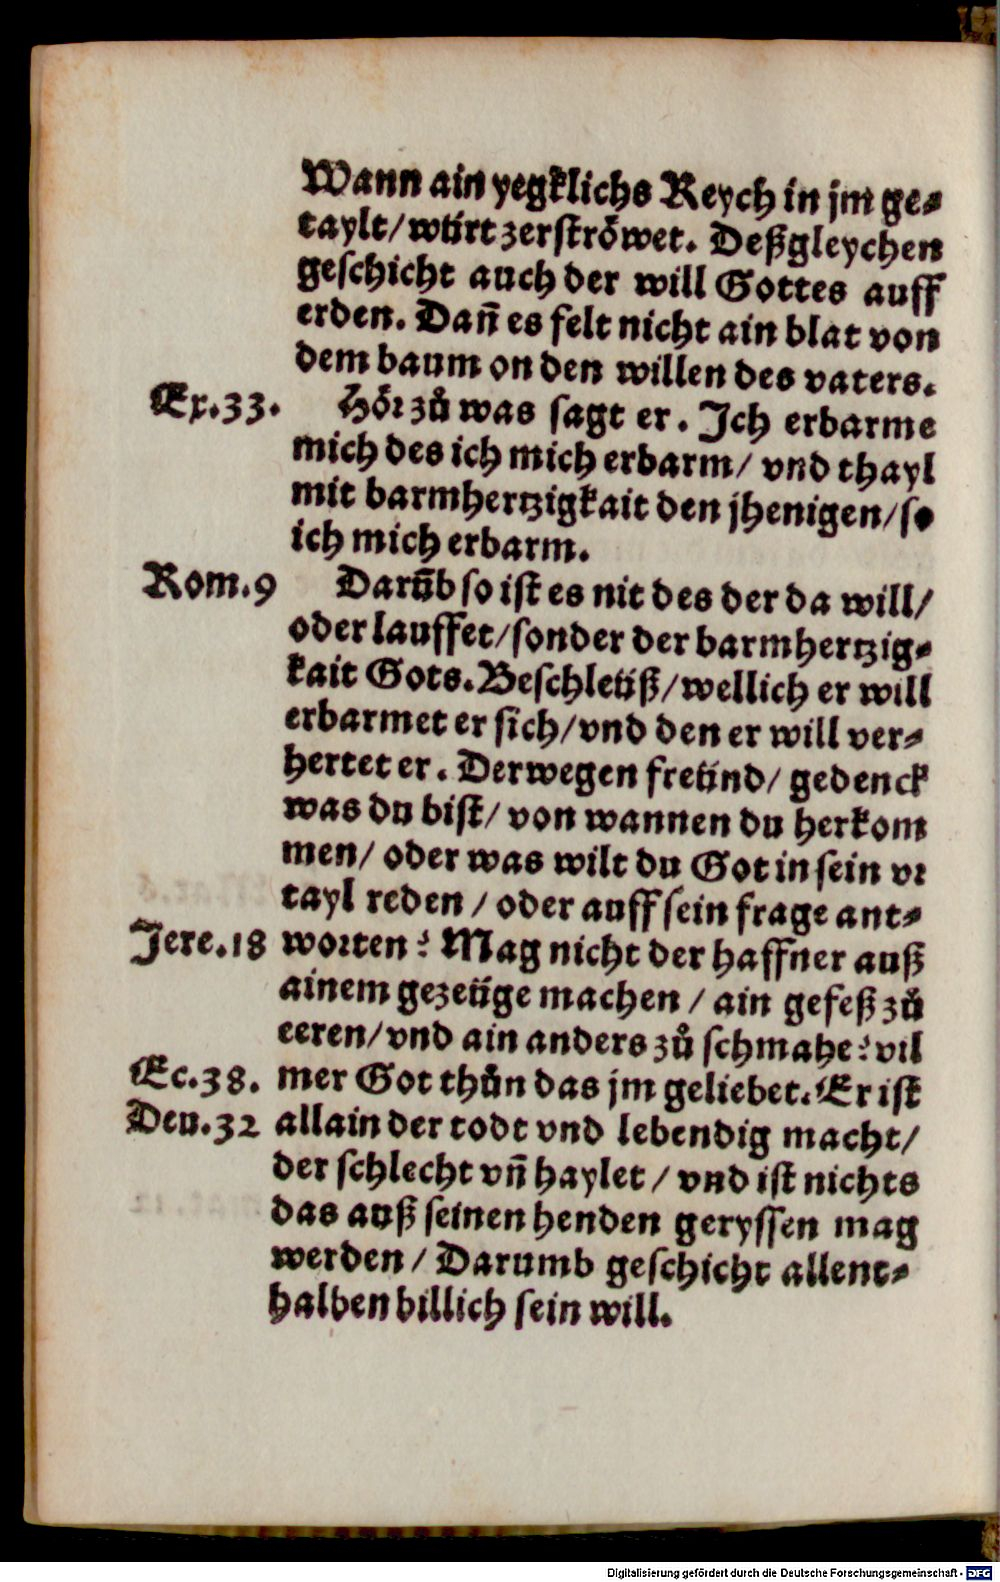 Wann ain yegklichs Reych in jm ge⸗
taylt/ wurt zerströwet. Deßgleychen
geschicht auch der will Gottes auff
erden. Dan̄ es felt nicht ain blat von
dem baum on den willen des vaters.
Ex.33. Hör zů was sagt er. Ich erbarme
mich des ich mich erbarm/ vnd thayl
mit barmhertzigkait den jhenigen/ so
ich mich erbarm.
Rom.9 Darūb so ist es nit des der da will/
oder lauffet/ sonder der barmhertzig⸗
kait Gots. Beschleüß/ wellich er will
erbarmet er sich/ vnd den er will ver⸗
hertet er. Derwegen freünd/ gedenck
was du bist/ von wannen du herkom
men/ oder was wilt du Got in sein vr
tayl reden / oder auff sein frage ant⸗
Jere.18 worten? Mag nicht der haffner auß
ainem gezeüge machen / ain gefeß zů
eeren/ vnd ain anders zů schmahe? vil
Ec.38. mer Got thůn das jm geliebet. Er ist
Deu.32 allain der todt vnd lebendig macht/
der schlecht vn̄ haylet / vnd ist nichts
das auß seinen henden geryssen mag
werden / Darumb geschicht allent⸗
halben billich sein will.
Digitalisierung gefördert durch die Deutsche Forschungsgemeinschaft - DFG